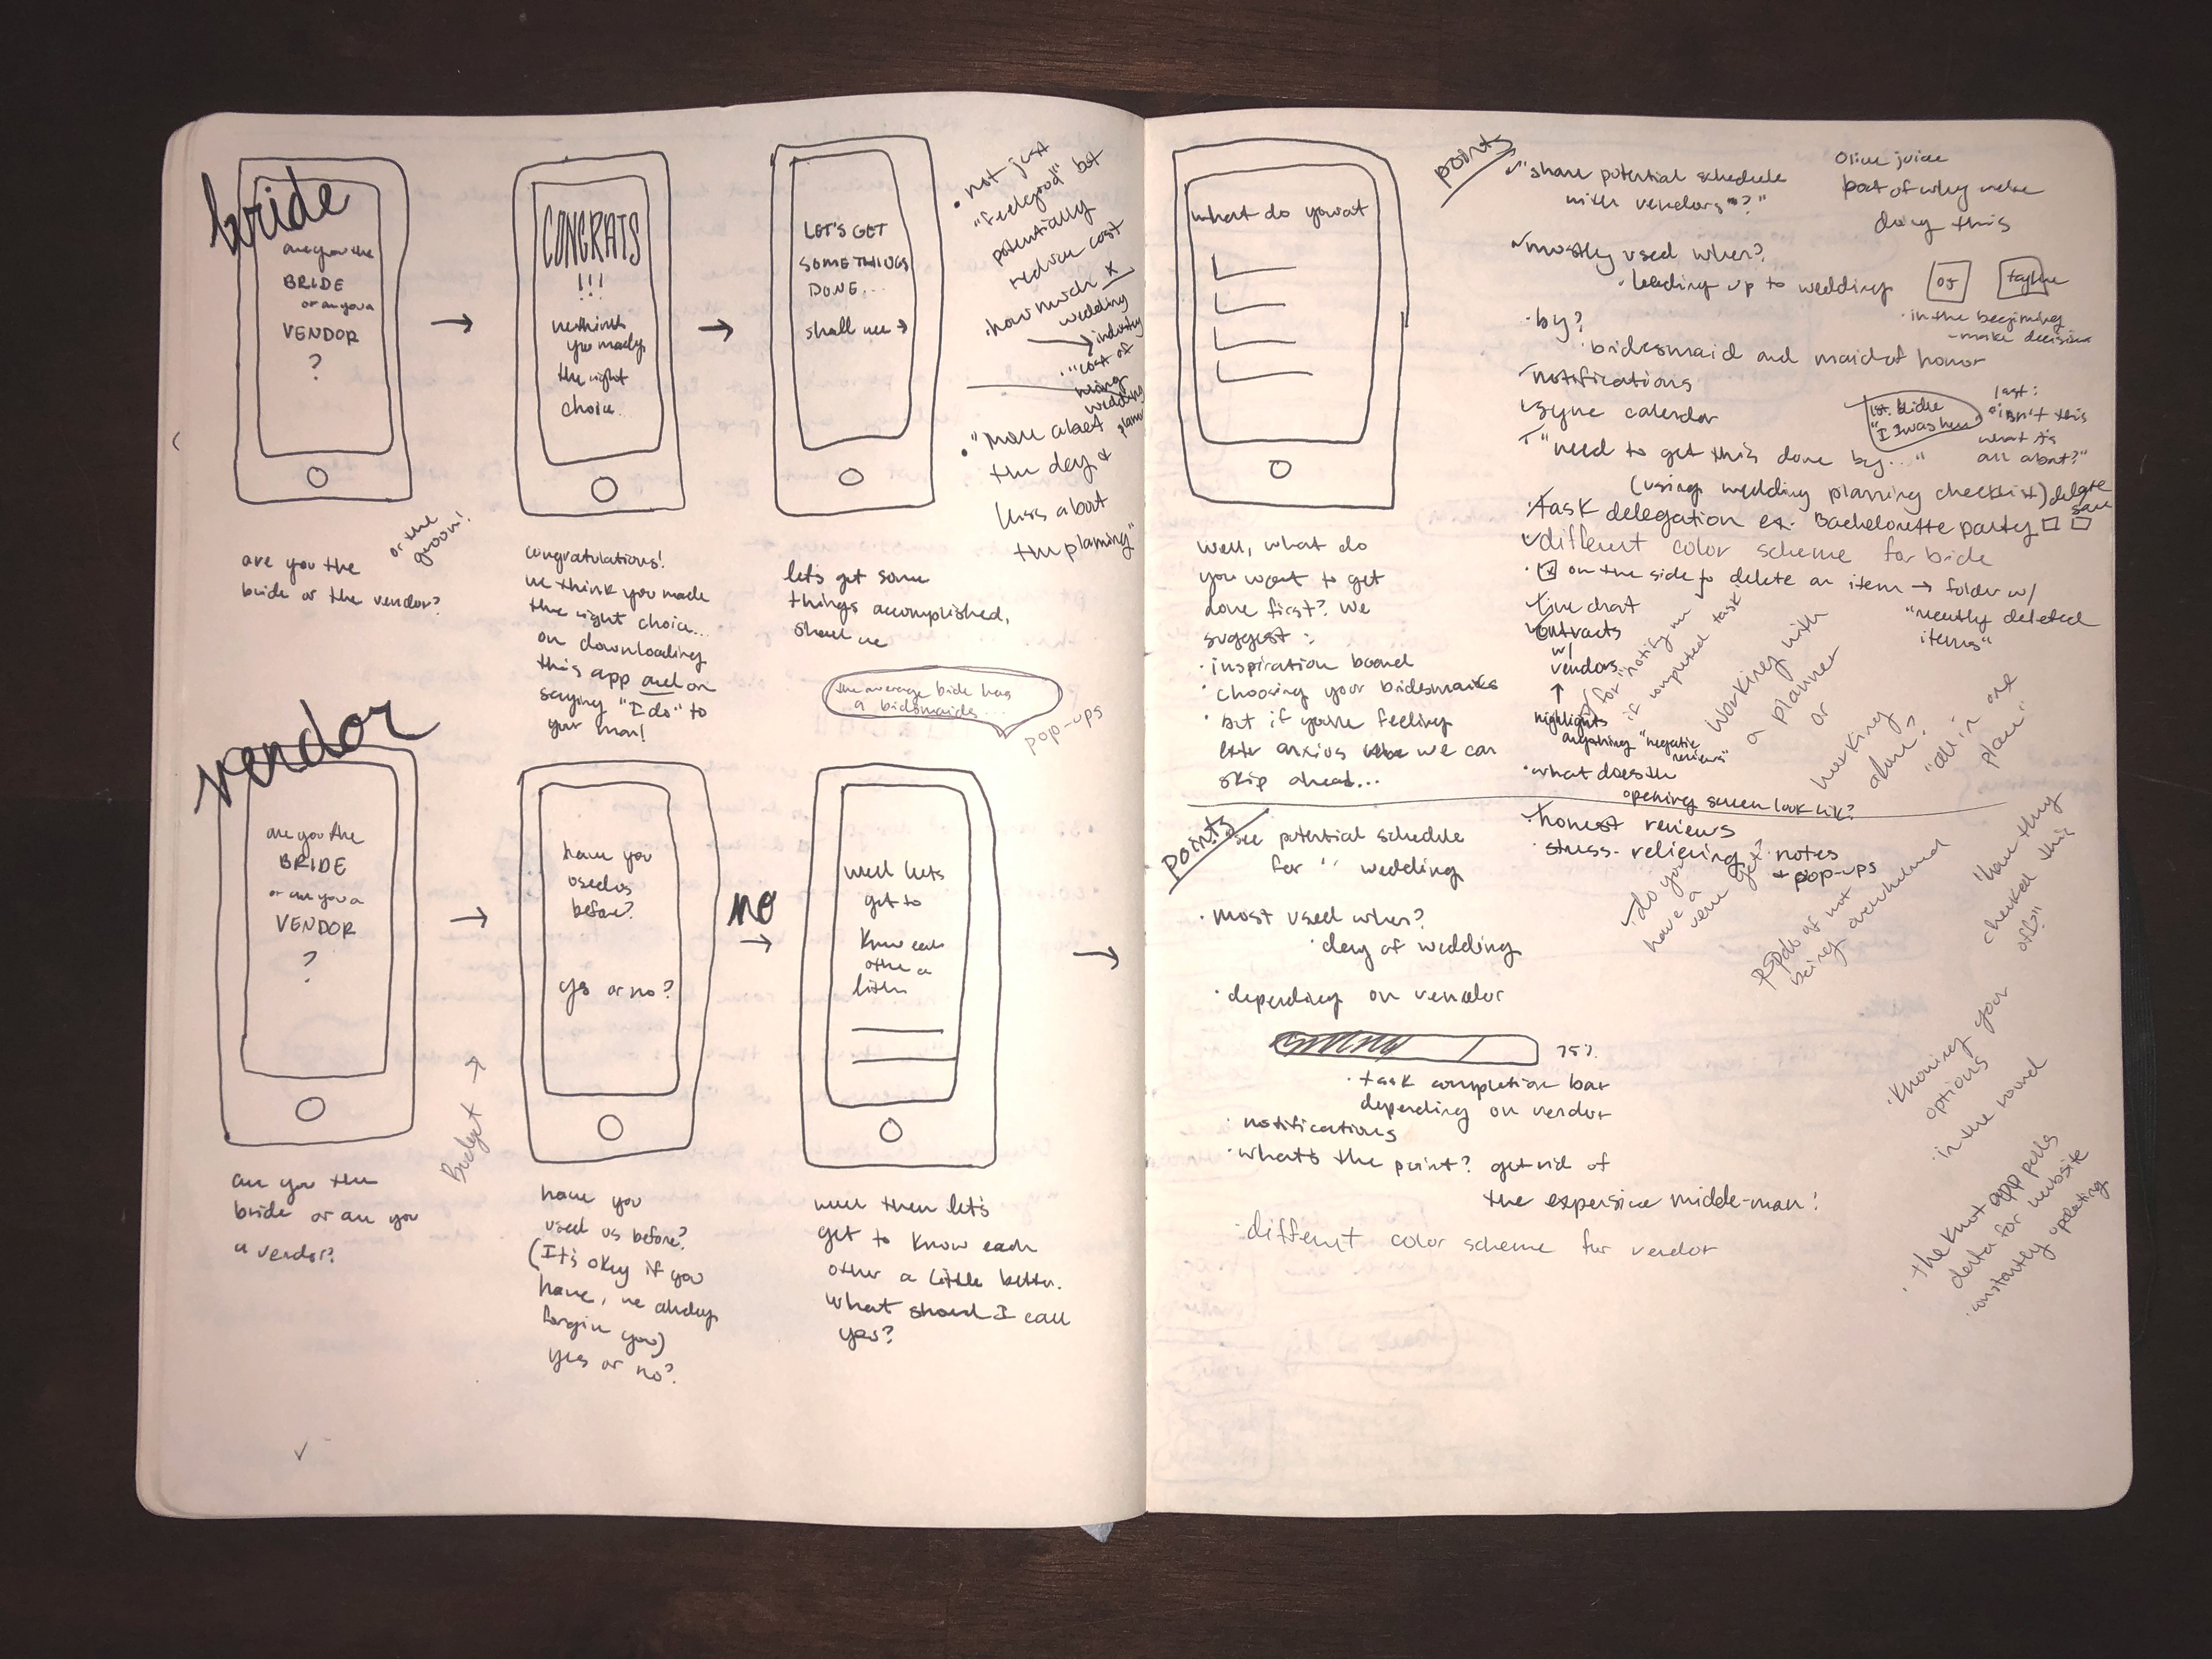 bride
are you the
BRIDE
or are you a
VENDOR
?
are you the
bride or the vendor?
or the
groom!
CONGRATS
!!!
we think
you made
the right
choice...
congratulations!
we think you made
the right choice...
on downloading
this app and on
saying "I do" to
your man!
LET'S GET
SOME THINGS
DONE...
shall we →
lets get some
things accomplished,
shall we
the average bride has
a bidsmaids...
pop-ups
• not just
"feelgood" but
potentially
reduce cost
• how much x
wedding
industry
• "cost of
hiring
wedding
planner
• "more about
the day &
less about
the planning"
vendor
are you the
BRIDE
or are you a
VENDOR
?
are you the
bride or are you
a vendor?
Budget →
have you
used us
before?
yes or no?
have you
used us before?
(It's okay if you
have, we always
forgive you)
yes or no?
no
→
well lets
get to
know each
other a
little
well then let's
get to know each
other a little better.
what should I call
you?
what do you wat
well, what do
you want to get
done first? we
suggest:
• inspiration board
• choosing your bridesmaids
• but if you're feeling
extra anxious we can
skip ahead...
points
"share potential schedule
with vendors"?"
Olive juice
part of why we're
doing this
• mostly used when?
• leading up to wedding
OJ
tagline
• in the beginning
- make decision
• by?
bridesmaid and maid of honor
• notifications
• sync calendar
1st: bride
"I was here"
last:
"isn't this
what it's
all about?"
"need to get this done by..."
(using wedding planning checklist)
delegate
save
• task delegation ex. Bachelorette party
• different color scheme for bride
• x on the side to delete an item → folder w/
"recently deleted
items"
• live chat
• contracts
w/
vendors
↑
highlights
anything "negative
reviews"
for "notify me
if completed task"
working with
a planner
or
working
alone?
"all in one
place"
• what does the
opening screen look like?
• honest reviews
• stress-relieving notes
+ pop-ups
• do you
have a
venue yet?
being overwhelmed
"have they
checked this
off?"
• knowing your
options
in the round
• the knot app pulls
data for website
• constantly updating
points
• see potential schedule
for " wedding
• most used when?
• day of wedding
• depending on vendor
75%
• task completion bar
depending on vendor
• notifications
• what's the point? get rid of
the expensive middle-man!
• different color scheme for vendor